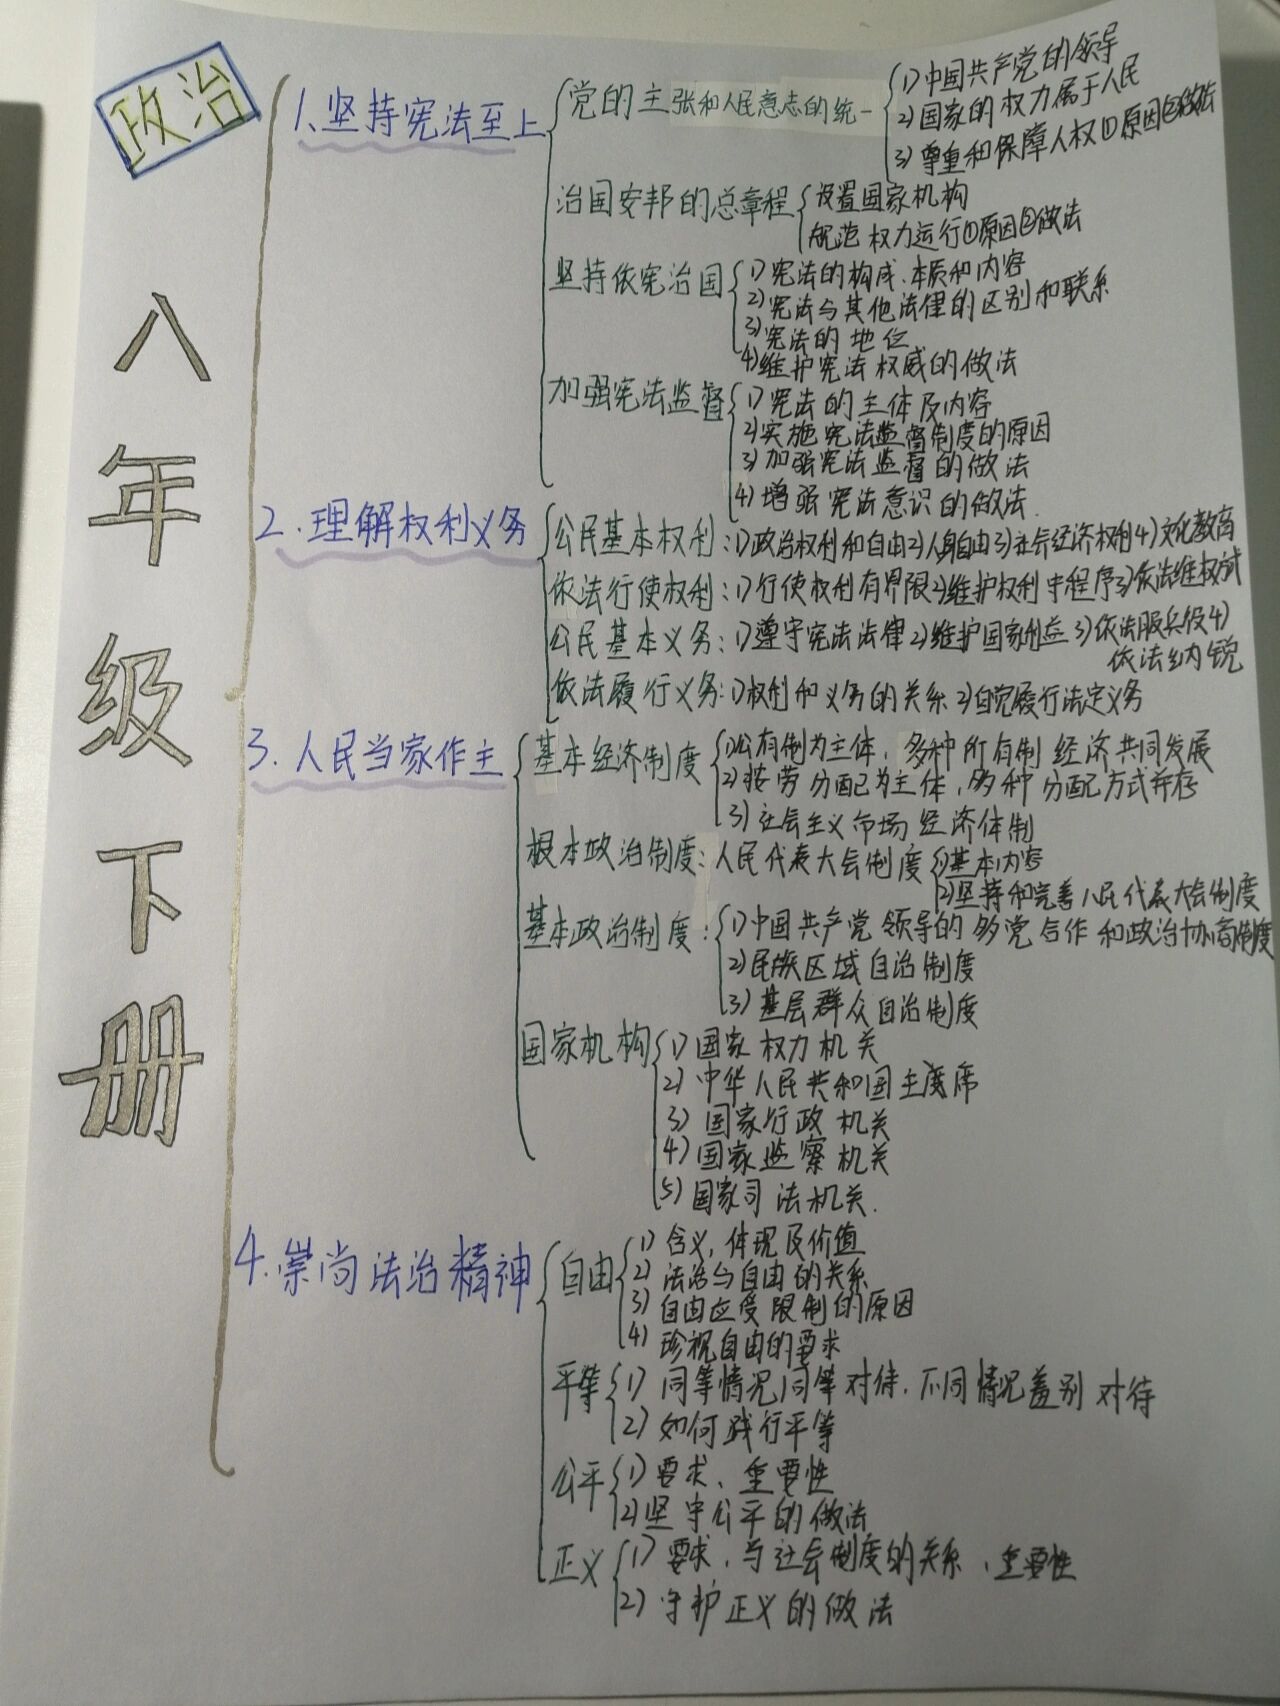 政治
八年级下册
1、坚持宪法至上
党的主张和人民意志的统一
1)中国共产党的领导
2)国家的权力属于人民
3)尊重和保障人权①原因②做法
治国安邦的总章程
设置国家机构
规范权力运行①原因②做法
坚持依宪治国
1)宪法的构成、本质和内容
2)宪法与其他法律的区别和联系
3)宪法的地位
4)维护宪法权威的做法
加强宪法监督
1)宪法的主体及内容
2)实施宪法监督制度的原因
3)加强宪法监督的做法
4)增强宪法意识的做法.
2.理解权利义务
公民基本权利:1)政治权利和自由2)人身自由3)社会经济权利4)文化教育
依法行使权利:1)行使权利有界限2)维护权利守程序3)依法维权
公民基本义务:1)遵守宪法法律2)维护国家利益3)依法服兵役4)
依法纳税
依法履行义务:1)权利和义务的关系2)自觉履行法定义务
3.人民当家作主
基本经济制度
1)公有制为主体,多种所有制经济共同发展
2)按劳分配为主体,多种分配方式并存
3)社会主义市场经济体制
根本政治制度:人民代表大会制度
1)基本内容
2)坚持和完善人民代表大会制度
基本政治制度:
1)中国共产党领导的多党合作和政治协商制度
2)民族区域自治制度
3)基层群众自治制度
国家机构
1)国家权力机关
2)中华人民共和国主席
3)国家行政机关
4)国家监察机关
5)国家司法机关.
4.崇尚法治精神
自由
1)含义,体现及价值
2)法治与自由的关系
3)自由应受限制的原因
4)珍视自由的要求
平等
1)同等情况同等对待,不同情况差别对待
2)如何践行平等
公平
1)要求、重要性
2)坚守公平的做法
正义
1)要求、与社会制度的关系、重要性
2)守护正义的做法